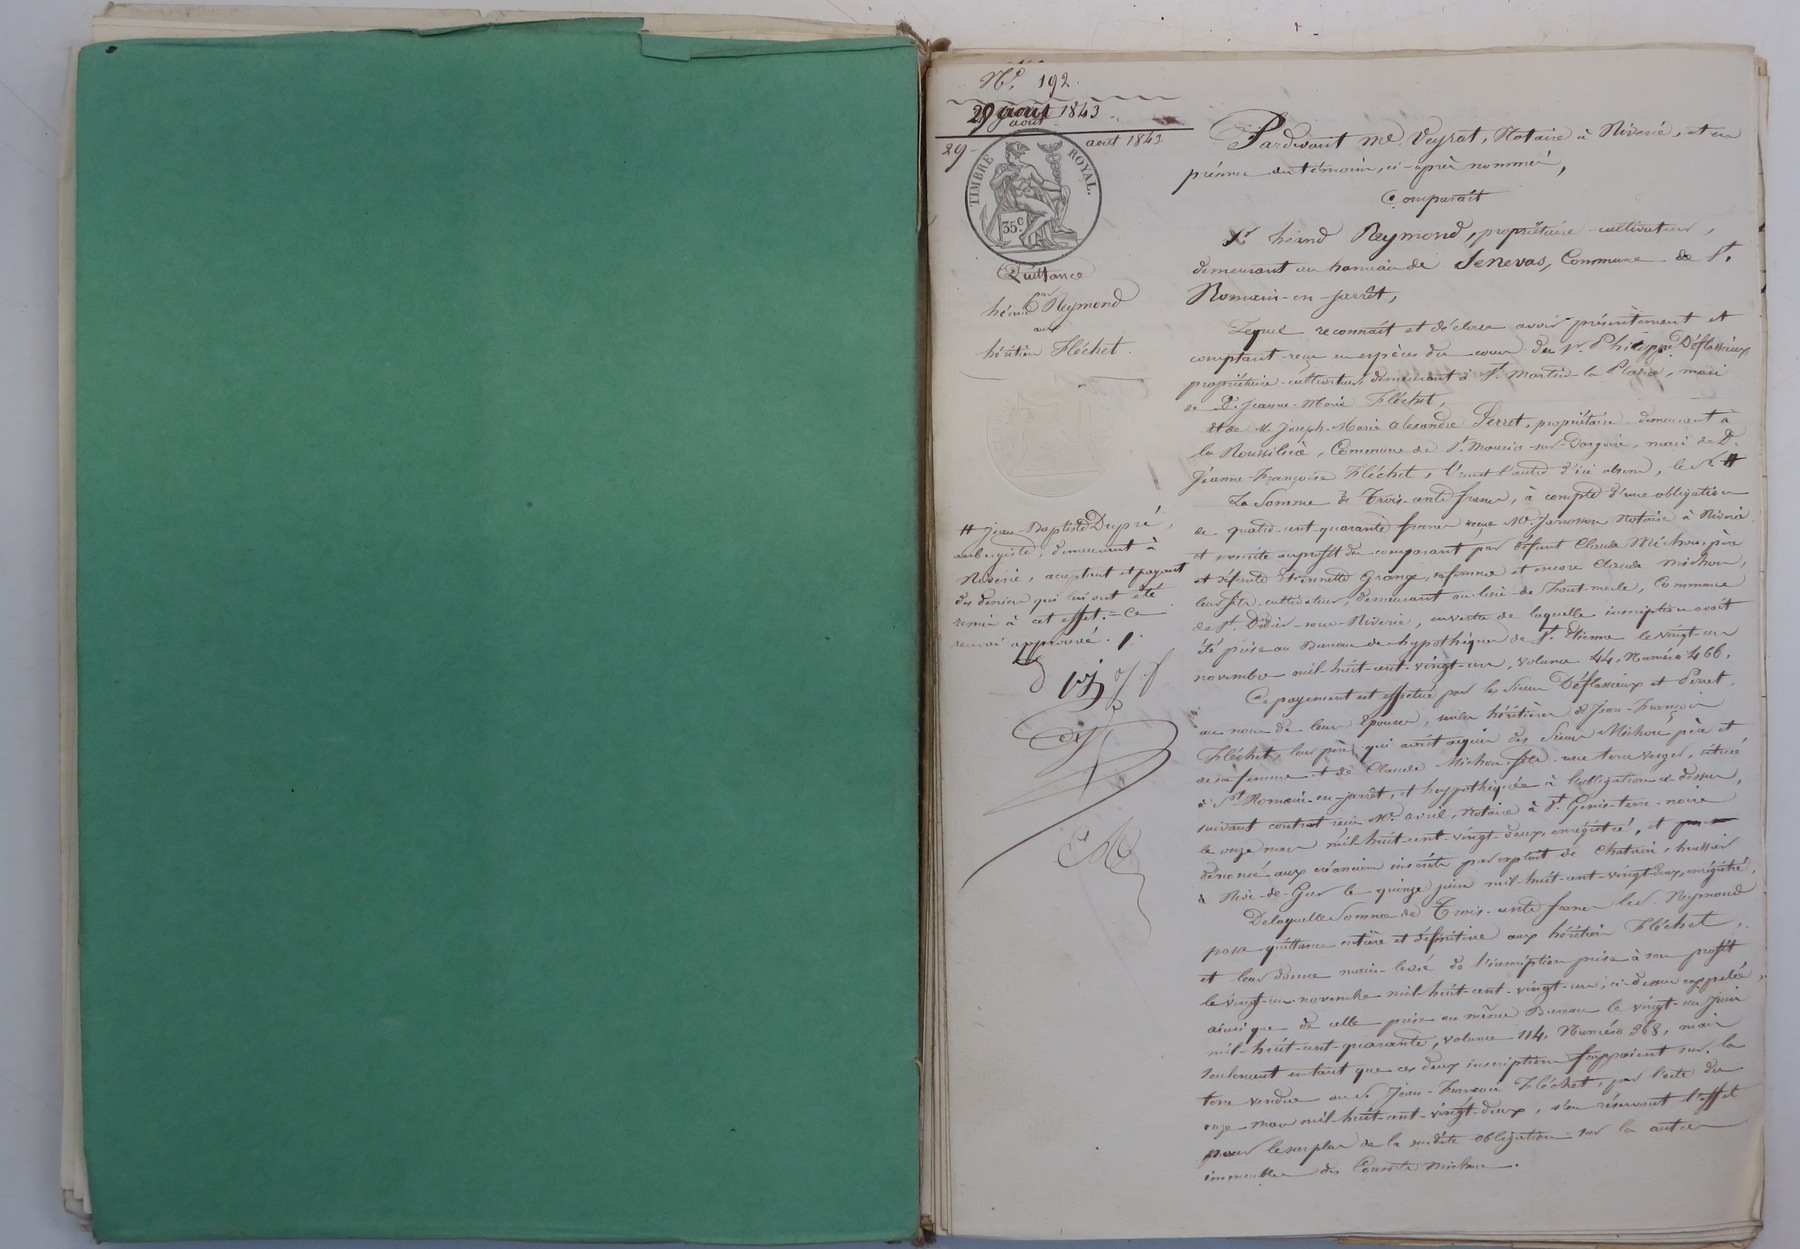 No. 192.
29 août 1843
août
29 - août 1843.
TIMBRE ROYAL.
35 c.
Quittance
par
héand Reymond
aux
héritiers Fléchet.
Pardevant Me. Veyrat, Notaire à Riverie, et en
présence des témoins, ci-après nommés,
Comparaît
Sr. héand Reymond, propriétaire cultivateur,
demeurant au hameau de Senevas, Commune de St.
Romain-en-jarrêt,
Lequel reconnaît et déclare avoir présentement et
comptant reçu en espèces du cours des Sr. Philippe Déflassieux
propriétaire-cultivateur demeurant à St. Martin-la-Plaine, mari
de De. Jeanne-Marie Fléchet,
et de M. Joseph-Marie Alexandre Perret, propriétaire demeurant à
la Roussilière, Commune de St. Maurice-sur-Dargoire, mari de De.
Jeanne-Françoise Fléchet, l'un et l'autre d'ici absens, le Sr. #
# Jean-Baptiste Dupré,
aubergiste, demeurant à
Riverie, acceptant et payant
des deniers qui lui ont été
remis à cet effet. = Ce
renvoi approuvé.
La Somme de Trois-cents francs, à compte d'une obligation
de quatre-cent-quarante francs reçue Me. Notaire à Riverie
et souscrite au profit du comparant par défunt Claude Michon père
et défunte Etiennette Grange, sa femme et encore Claude Michon,
leur fils, cultivateur, demeurant au lieu de Font-merle, Commune
de St. Didier-sous-Riverie, en vertu de laquelle inscription avait
été prise au Bureau des hypothèques de St. Etienne le vingt-un
novembre mil-huit-cent-vingt-un, volume 44, Numéro 466.
Ce payement est effectué par les Sieurs Déflassieux et Perret,
au nom de leurs épouses, seules héritières de Jean-François
Fléchet, leur père, qui avait acquis des Sieurs Michon père et
de sa femme et de Claude Michon fils une terre verger, située
à St. Romain-en-jarrêt, et hypothéquée à l'obligation ci-dessus,
suivant contrat reçu Me. Avril, Notaire à St. Genis-terre-noire
le onze mars mil-huit-cent-vingt-deux, enregistré, et
dénoncé aux créanciers inscrits par exploit de Chatain, huissier
à Rive-de-Gier le quinze juin mil-huit-cent-vingt-deux, enregistré,
De laquelle Somme de Trois-cents francs le Sr. Reymond
passe quittance entière et définitive aux héritiers Fléchet,
et leur donne main-levée de l'inscription prise à son profit
le vingt-un novembre mil-huit-cent-vingt-un, ci-dessus rappelée,
ainsi que de celle prise au même Bureau le vingt-un juin
mil-huit-cent-quarante, volume 114, Numéro 368, mais
seulement en tant que ces deux inscriptions frappaient sur la
terre vendue au Sr. Jean-François Fléchet, par l'acte du
onze mars mil-huit-cent-vingt-deux, s'en réservant l'effet
pour le surplus de la susdite obligation sur les autres
immeubles des Consorts Michon.